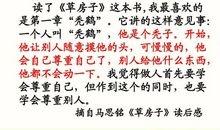 读了《草房子》这本书,我最喜欢的
是第一章“秃鹤”。它讲的这样意见事:
一个人叫“秃鹤”,他是个秃子。开始,
他让别人随意摸他的头,可慢慢的,他
会自己尊重自己了,别人给他什么东西,
他都不会动一下。我觉得做人首先要学
会尊重自己,但作到这个的同时,也要
学会尊重别人。
摘自马思铭《草房子》读后感